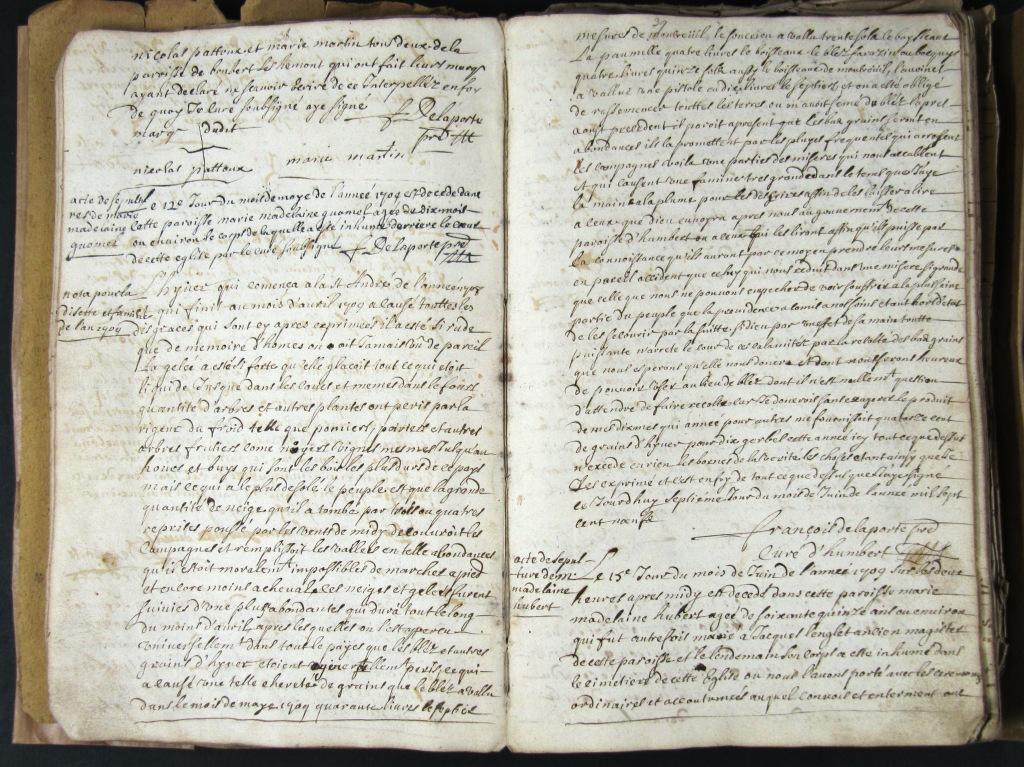 nicolas pattoux et marie martin tous deux de la
paroisse de humbert les hemont qui ont fait leurs marqs
ayant declaré ne scavoir écrire de ce interpellez en foy
de quoy Je curé soubsigné ay signé
f Delaporte
prb
marq dudit
nicolas pattoux
marie martin
acte de sepultu
res de marie
madelaine
quenet
le 12e Jour du mois de maye de l'année 1709 est decedé dans
cette paroisse marie madelaine quenet agée de dix mois
ou environ le corps de laquelle a este inhumé derriere le cœur
de cette eglise par le curé soubsigné f Delaporte prb
nota pour la
disette et famine
de l'an 1709
L'hyver qui comença a la St André de l'année 1708
qui finit au mois d'avril 1709 a causé touttes les
disgraces qui sont cy apres exprimées il a esté si rude
que de memoire d'homes on n'oit Jamais vu de pareil
La gelée a esté si forte qu'elle glaçoit tout ce qui etoit
liquide Jusque dans les caves et memes dans le fours
quantité d'arbres et autres plantes ont peris par la
rigeur du froid telle que pomiers, poiriers et autres
arbres fruitiers come noyers vignes mesmes Jusqu'au
houes et buys qui sont les bois les plus durs de ce pays
mais ce qui a le plus desolé le peuple est que la grande
quantité de neige qu'il a tombé par trois ou quatres
reprises poussé par les vents de midy decouvroit les
Campagnes et remplissoit les vallées en telle abondances
qu'il estoit moralemt impossibles de marcher a pied
et encore moins a cheval Ces neiges et gelées furent
suivies d'une pluye abondantes qui dura tout le long
du moins d'avril apres lesquelles on s'est apperceu
universellemt dans tout le pays que les blez et autres
grains d'hyver etoient generallemt peris ce qui
a causé une telle chereté de grains que le blez a vallu
dans le mois de maye 1709 quarante livres le septier
mesures de montreuil, le soucrion a vallu trente solz le boisseaux
La paumille quatre livres le boisseaux le blez sarazin ou bocquy
quatre livres quinze solz aussy le boisseaux de montreuil, l'avoine
a vallue une pistole ou dix livres le septier et on a esté obligé
de rassemencer touttes les terres ou on avoit semé du blez la pret
a oust precedent il paroit apresent que les bas grains seront en
abondances ils la promettent par les pluyes frequentes qui arrosent
les campagnes voila une parties des miseres qui nous accablent
et qui causent une famines tres grande dans le tems que J'aye
la main a la plume pour les descrires affin de les laisser a lire
a ceux que dieu envoyra apres nous au gouvernement de cette
paroisse d'humbert ou a ceux qui les liront affin qu'ils puisse par
la connoissance qu'ils auront par ce moyen prendre leurs mesures
en pareil accident que celuy qui nous reduit dans une misere si grande
que celle que nous ne pouvons empecher de voir souffrir a la plus saine
partie du peuple que la providence a comis a nos soins etant hors d'etat
de les secourir par la suitte si dieu par un effet de sa main toutte
puissante n'arrete le cour de ces calamitez par la recolte des bas grains
que nous esperons qu'elle nous donera et dont nous serons heureux
de pouvoir user au lieu de blez dont il n'est nullemt question
d'attendre de faire recolte
de mes dixmes qui année pour autres me fournissoit quatorze cent
de grains d'hyver pour dix gerbes cette année icy tout ce que dessus
n'excede en rien les bornes de la verité les choses etant ainsy que Je
Les exprimé et c'est en foy de tout ce que dessus que J'aye signé
ce Jourd'huy septieme Jour du mois de Juin de l'année mil sept
cent neufe
François delaporte prb
Curé d'humbert
acte de sepul
ture de m
madelaine
hubert
Le 15e Jour du mois de Juin de l'année 1709 sur les deux
heures apres midy est decedé dans cette paroisse marie
madelaine hubert agée de soixante quinze ans ou environ
qui fut autrefois mariée a Jacques lenglet ancien magister
de cette paroisse et le lendemain son corps a este inhumé dans
le cimetiere de cette Eglise ou nous l'avons porté avec les ceremonies
ordinaires et accoutumées auquel convois et enterment ont